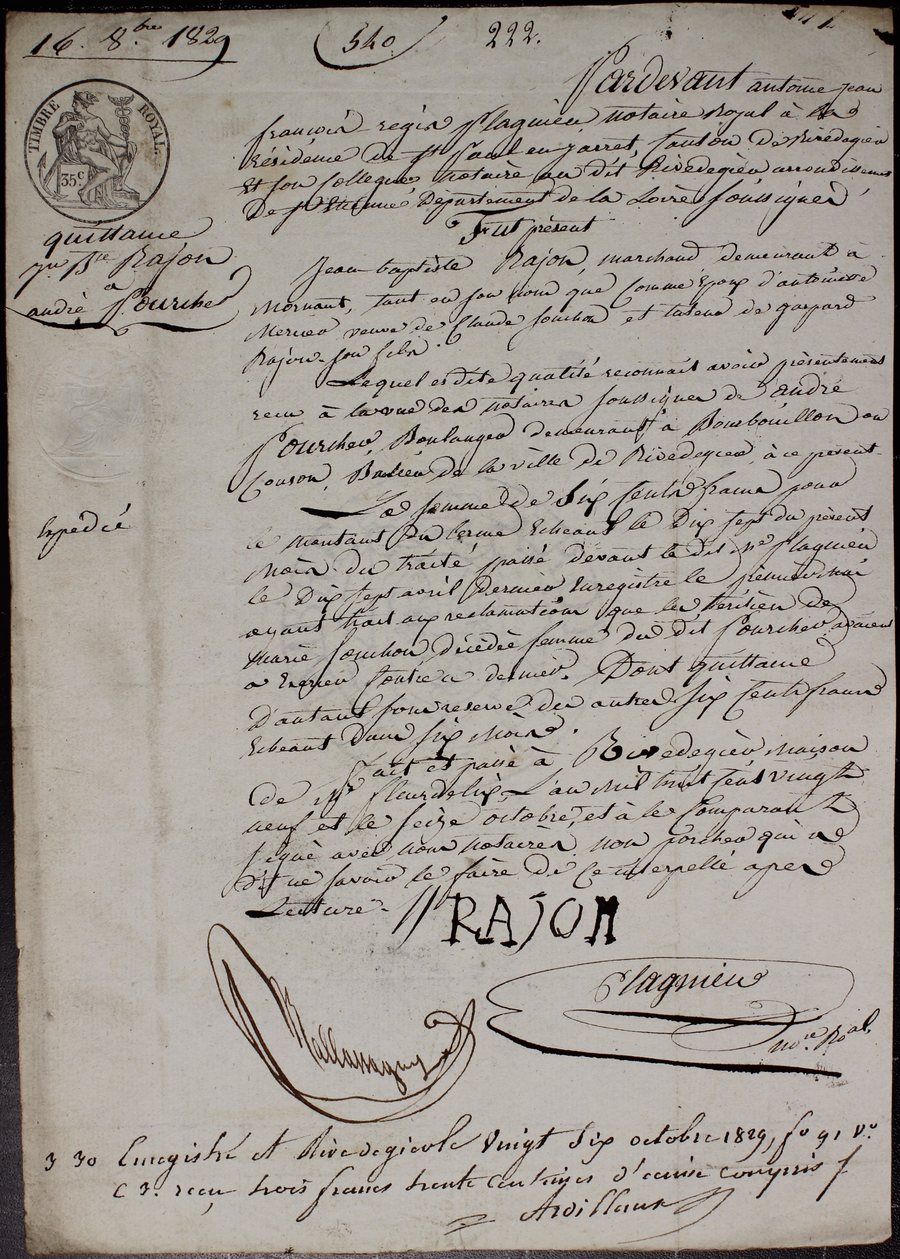 16. 8.bre 1829
540
222.
TIMBRE ROYAL.
35c
quittance
Jn Bte Rajon
a
andré Fourcher
Expédié
Pardevant antoine jean
francois regis Plagnieu, notaire Royal à la
Résidence de St Paul en jarret, canton de Rivedegier
Et son Collegue notaire au dit Rivedegier arrondissement
De St Etienne Departement de la Loire soussignés
Fut présent
Jean baptiste Rajon, marchand demeurant à
Mornant, tant en son nom que comme Epoux d'antoinette
Mercier veuve de Claude Souchon et tuteur de gaspard
Rajon son fils.
Lequel es dite qualité reconnait avoir présentement
recu à la vue des notaires soussignés de andré
Fourcher, Boulanger demeurant à Bourbouillon ou
Couzon, Banlieu de la ville de Rivedegier, à ce présent
La somme de Six Cents francs pour
le montant du terme Echeant le Dix sept du présent
Mois du traité passé devant le dit Me Plagnieu
le Dix sept avril Dernier Enregistré le premier mai
ayant trait aux reclamations que les héritiers de
Marie Souchon, décédée femme du dit Fourcher avaient
a Exercer contre ce dernier. Dont quittance
D'autant sous reserve des autres Six Cents francs
Echeant Dans six Mois.
fait et passé à Rivedegier Maison
de Mr fleurdelix, L'an mil huit cent vingt
neuf et le seize octobre, et à le Comparant
signé avec nous notaires non forcher qui a
Dit ne savoir le faire de Ce interpellé apres
Lecture.
RAJON
Plagnieu
nore Roal
3 30 Enregistré à Rivedegier le vingt six octobre 1829, fo 91 Vo
C 3. reçu trois francs trente centimes dixieme compris
Ardillaux